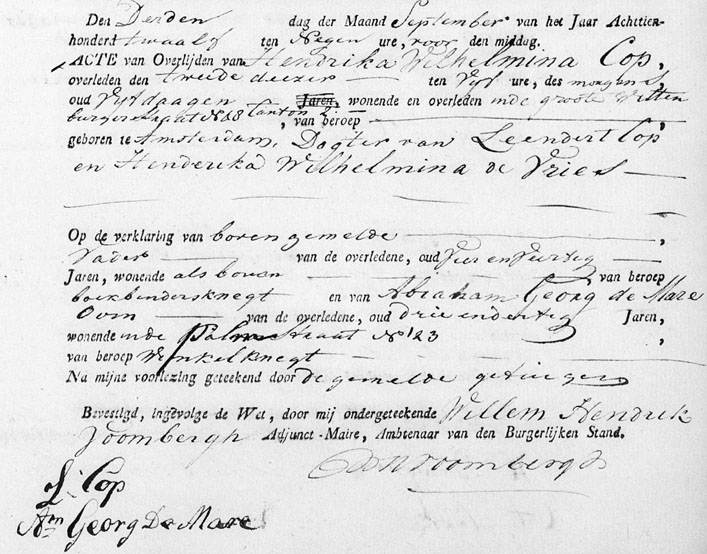 Den Derden dag der Maand September van het Jaar Achttien-
honderd twaalf ten Negen ure, voor den middag.
ACTE van Overlijden van Hendrika Wilhelmina Cop,
overleden den tweede deezer — ten Vyf ure, des morgens
oud Vyf daagen Jaren, wonende en overleden inde groote Witten
burgerstraat N 18 Canton 2. , van beroep — ,
geboren te Amsterdam, Dogter van Leendert Cop
en Henderika Wilhelmina de Vries —
Op de verklaring van boven gemelde — ,
Vader — van de overledene, oud Vier en Veertig —
Jaren, wonende als boven — van beroep
boekbindersknegt en van Abraham Georg de Mare
Oom — van de overledene, oud drie endertig Jaren,
wonende inde Palmstraat N 123 ,
van beroep Winkelknegt —
Na mijne voorlezing geteekend door de gemelde getuigen
Bevestigd, ingevolge de Wet, door mij ondergeteekende Willem Hendrik
Voombergh Adjunct-Maire, Ambtenaar van den Burgerlijken Stand.
WHVoombergh
L. Cop
Am Georg De Mare